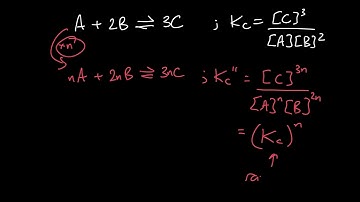 A + 2B ⇌ 3C ; Kc = [C]³ / [A][B]²
"n"
nA + 2nB ⇌ 3nC ; Kc" = [C]³ⁿ / [A]ⁿ[B]²ⁿ
= (Kc)ⁿ
↑
rai